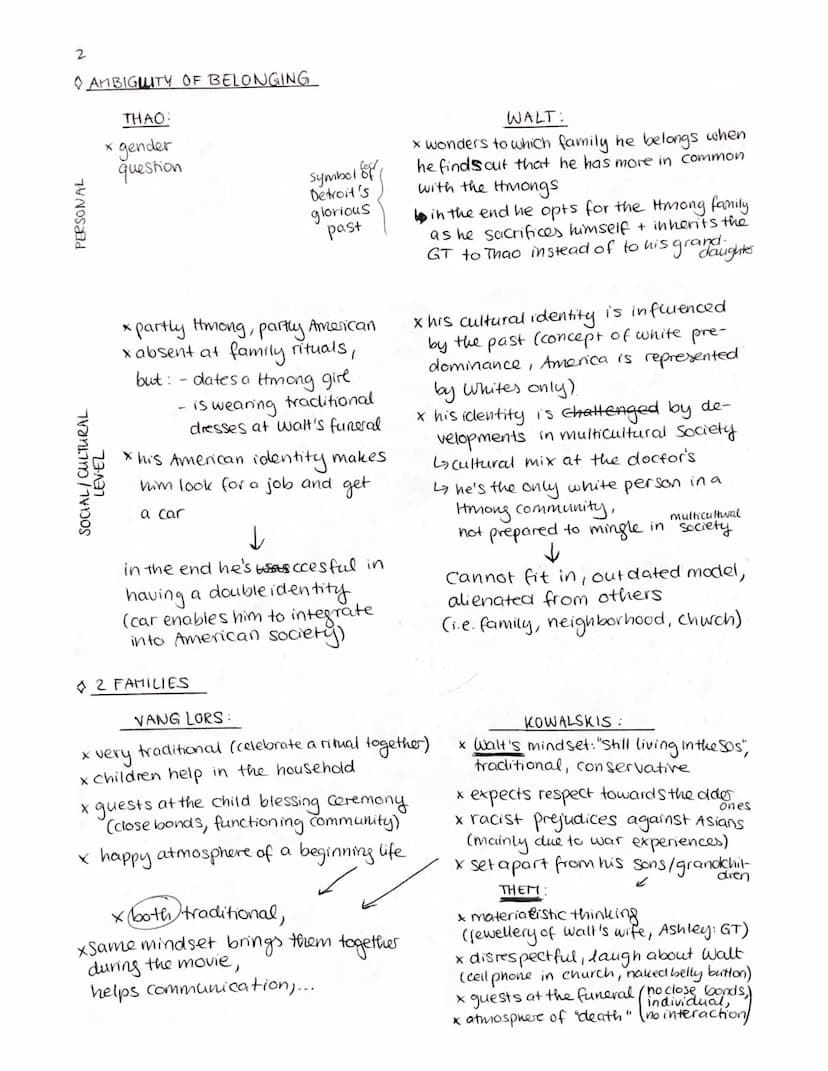 2
◊ AMBIGUITY OF BELONGING
THAO:
x gender
question
PERSONAL
symbol of
Detroit's
glorious
past
WALT:
x wonders to which family he belongs when
he finds out that he has more in common
with the Hmongs
↳ in the end he opts for the Hmong family
as he sacrifices himself + inherits the
GT to Thao instead of to his grand-
daughter
SOCIAL/CULTURAL
LEVEL
x partly Hmong, partly American
x absent at family rituals,
but: - dates a Hmong girl
- is wearing traditional
dresses at Walt's funeral
x his American identity makes
him look for a job and get
a car
↓
in the end he's succesful in
having a double identity
(car enables him to integrate
into American society)
x his cultural identity is influenced
by the past (concept of white pre-
dominance, America is represented
by Whites only)
x his identity is challenged by de-
velopments in multicultural society
↳ cultural mix at the doctor's
↳ he's the only white person in a
Hmong community,
not prepared to mingle in multicultural society
↓
Cannot fit in, outdated model,
alienated from others
(i.e. family, neighborhood, church)
◊ 2 FAMILIES
VANG LORS:
x very traditional (celebrate a ritual together)
x children help in the household
x guests at the child blessing ceremony
(close bonds, functioning community)
x happy atmosphere of a beginning life
x both traditional,
x same mindset brings them together
during the movie,
helps communication,...
KOWALSKIS:
x Walt's mindset: "still living in the 50s",
traditional, conservative
x expects respect towards the older
ones
x racist prejudices against Asians
(mainly due to war experiences)
x set apart from his sons/grandchil-
dren
THEM:
x materialistic thinking
(jewellery of Walt's wife, Ashley: GT)
x disrespectful, laugh about Walt
(cell phone in church, naked belly button)
x guests at the funeral (no close bonds,
individual,
x atmosphere of "death" no interaction)